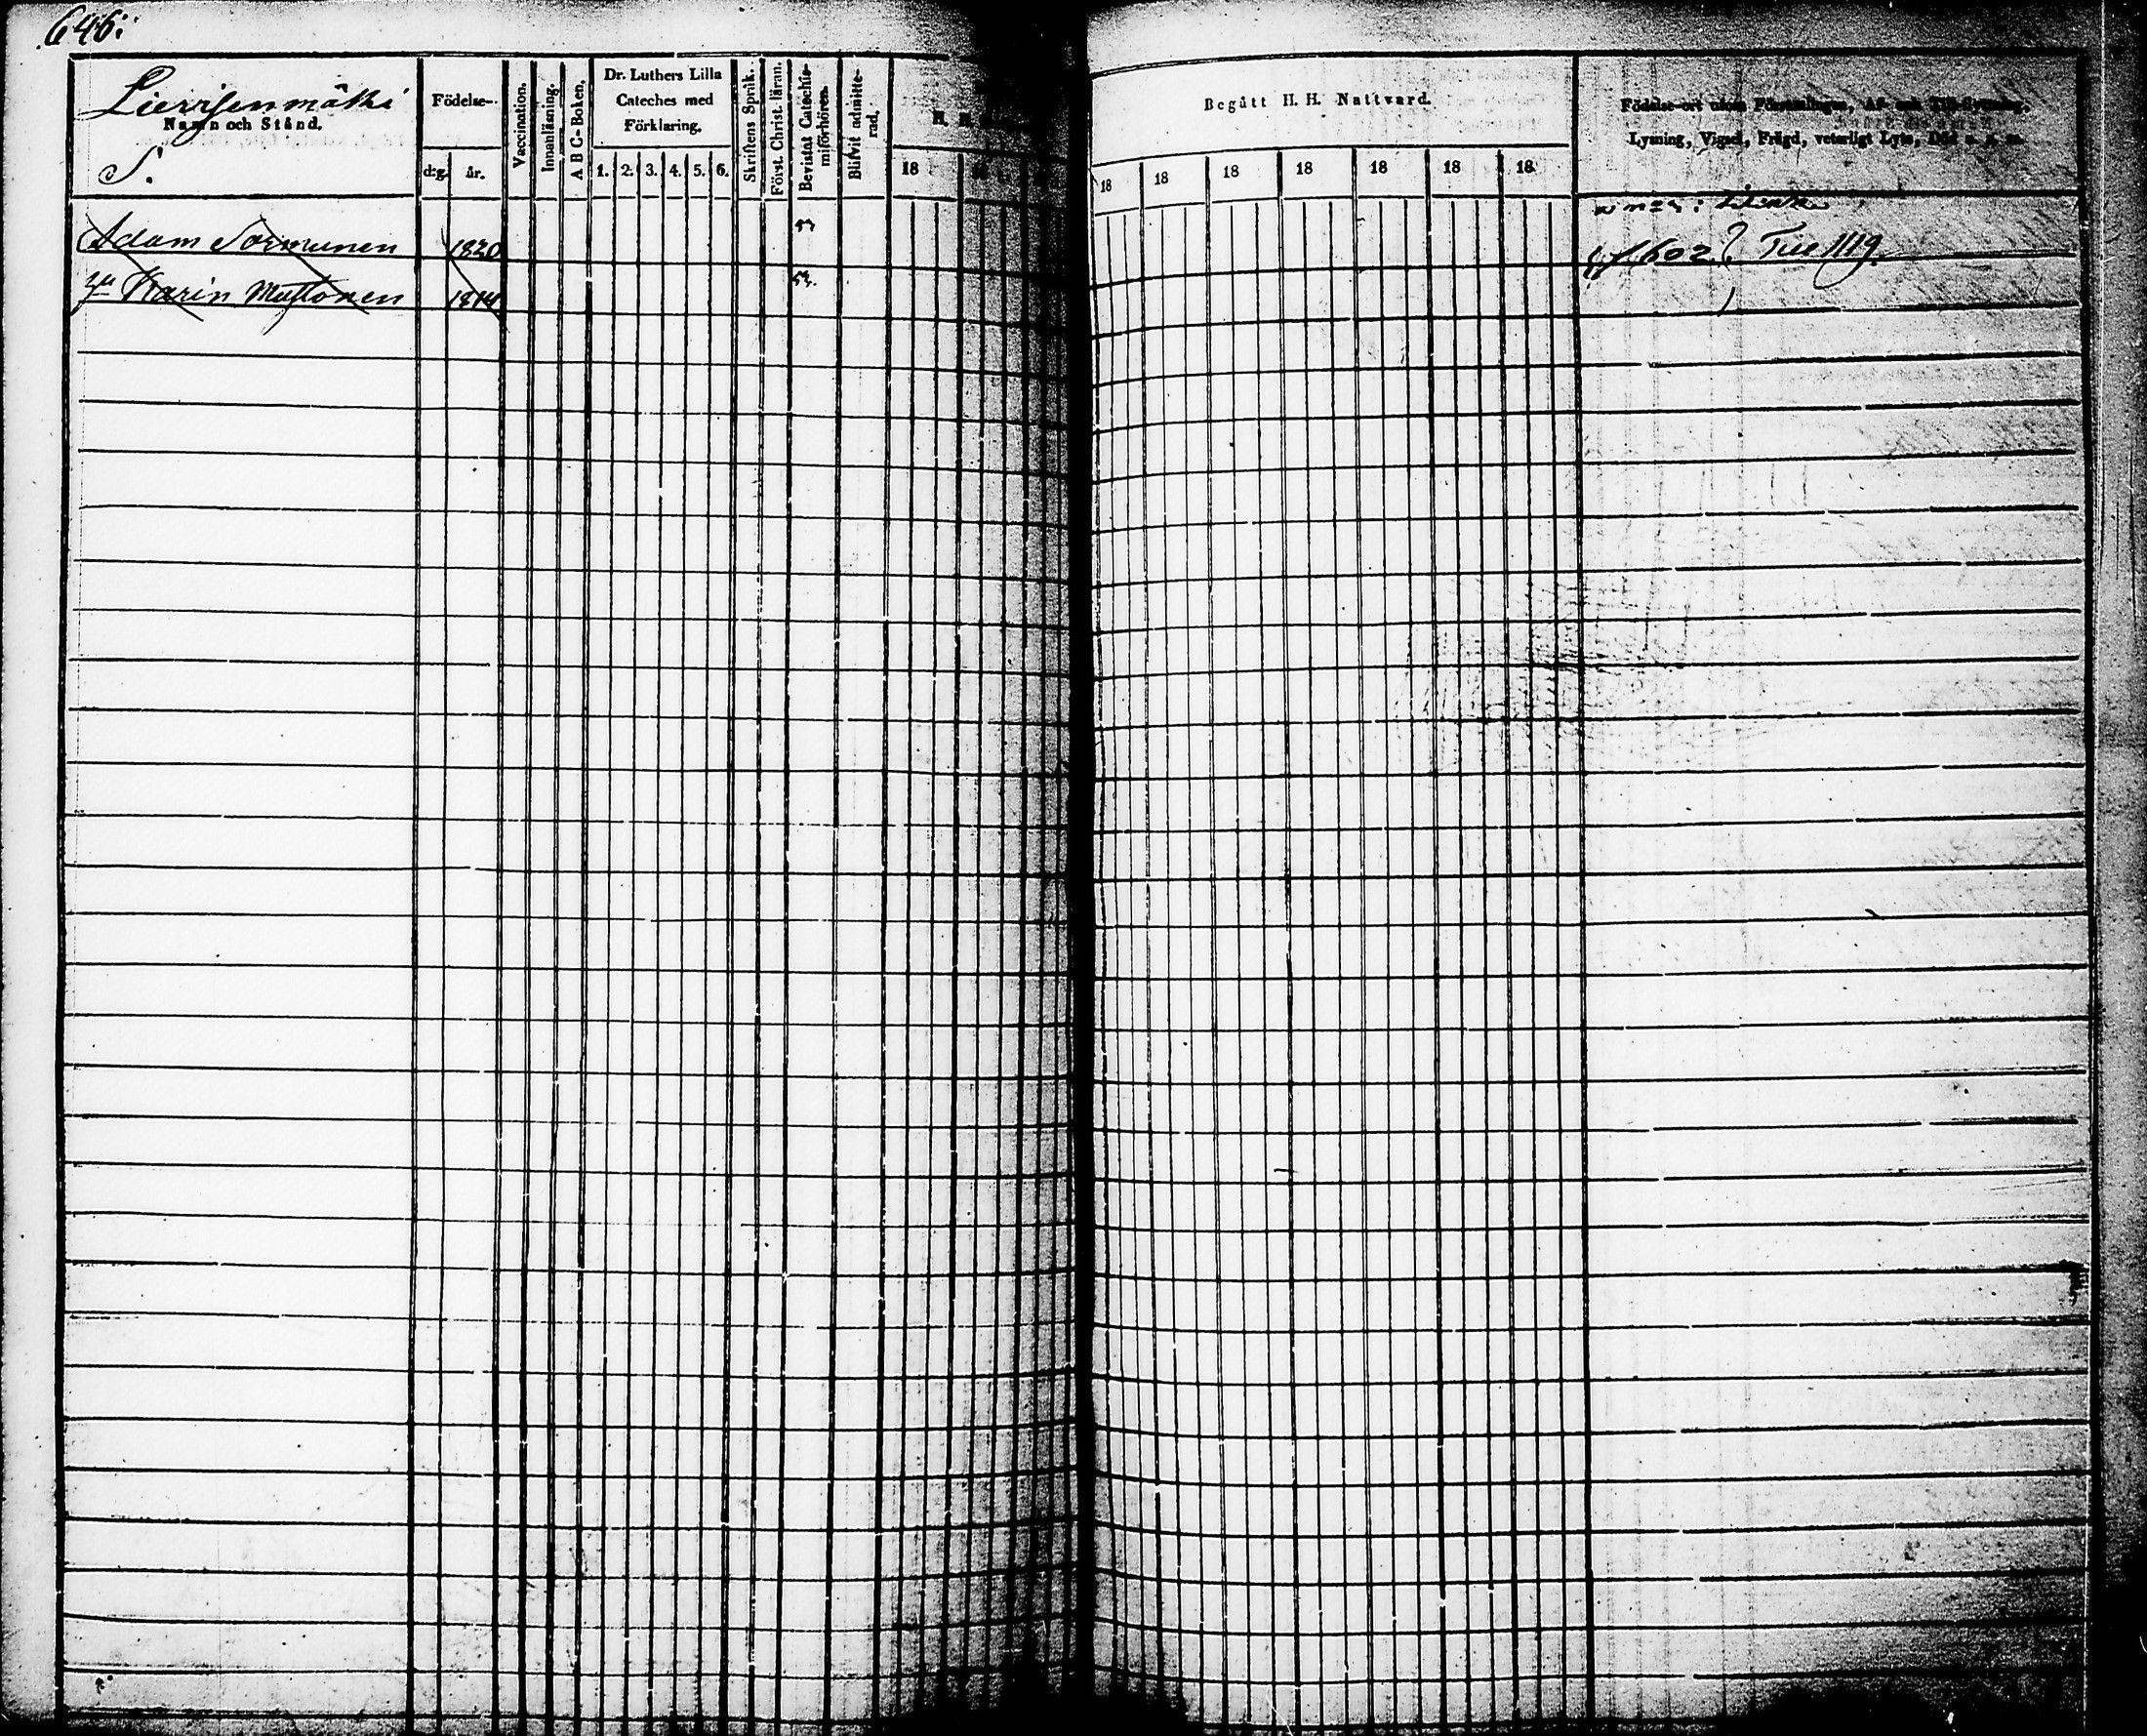 646:
Namn och Stånd.
S.
Födelse-
d:g. år.
Vaccination.
Innanläsning.
A B C-Boken.
Dr. Luthers Lilla
Cateches med
Förklaring.
1. 2. 3. 4. 5. 6.
Skriftens Språk.
Först. Christ. läran.
Bevistat Catechis-
miförhören.
Blifvit admitte-
rad.
18
Begått H. H. Nattvard.
18 18 18 18 18 18 18
Födelse-ort utom Församlingen, Af- och Till-flyttning,
Lysning, Vigsel, Frägd, veterligt Lyte, Död o. s. m.
Adam Sormunen 1820
Karin Mustonen 1814 53.
f. 602 Till 1119.